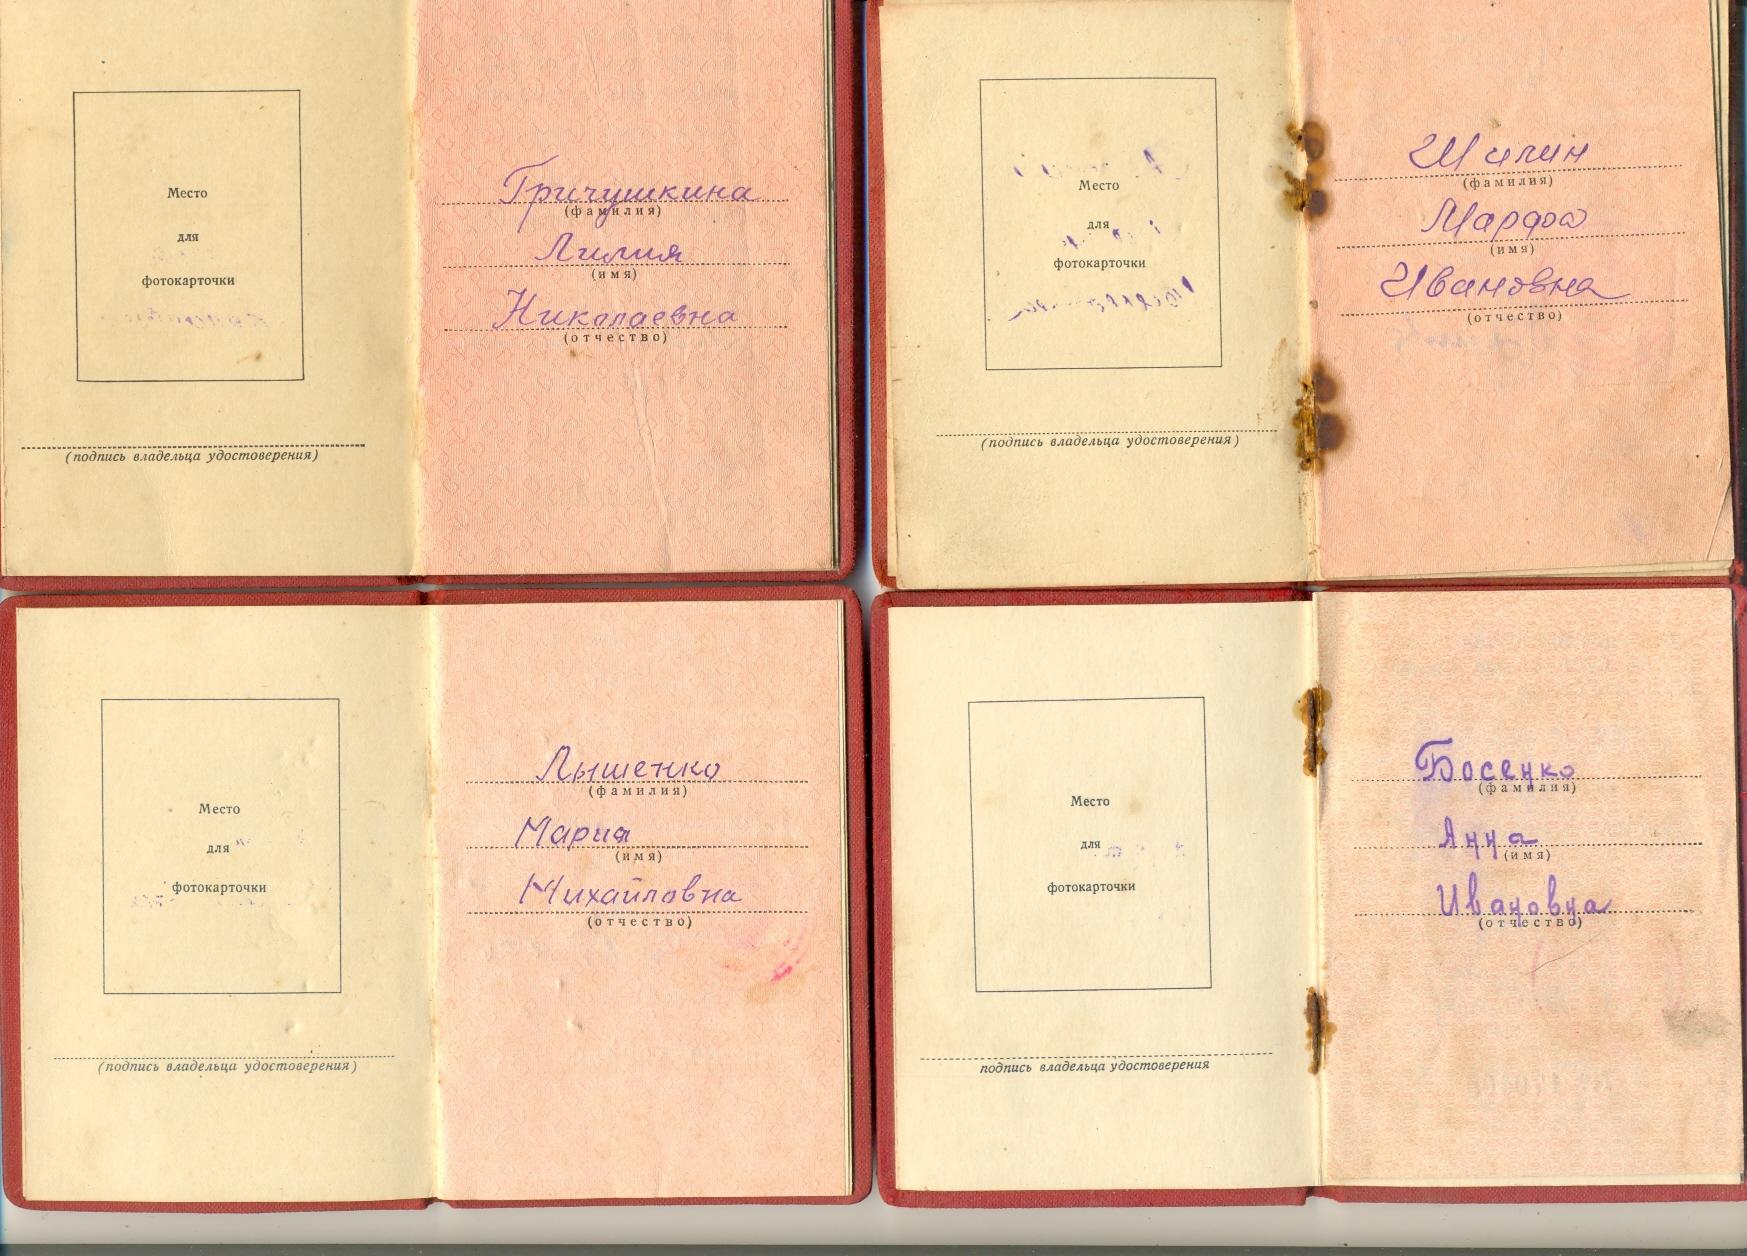 Место
для
фотокарточки
(подпись владельца удостоверения)
Гричушкина
(фамилия)
Лилия
(имя)
Николаевна
(отчество)
Место
для
фотокарточки
(подпись владельца удостоверения)
Шилин
(фамилия)
Марфа
(имя)
Ивановна
(отчество)
Место
для
фотокарточки
(подпись владельца удостоверения)
Лышенко
(фамилия)
Мария
(имя)
Михайловна
(отчество)
Место
для
фотокарточки
подпись владельца удостоверения
Босенко
(фамилия)
Анна
(имя)
Ивановна
(отчество)